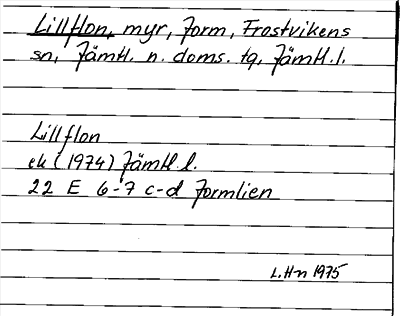 Lillflon, myr, Jorm, Frostvikens
sn, Jämtl. n. doms. tg, Jämtl. l.
Lillflon
ek (1974) Jämtl. l.
22 E 6-7 c-d Jormlien
L. H-n 1975